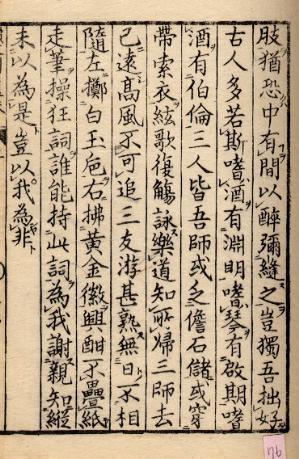 肢猶恐中有間以醉彌縫之豈獨吾拙好
古人多若斯嗜酒有淵明嗜琴有啟期嗜
酒有伯倫三人皆吾師或乏儋石儲或穿
帶索衣絃歌復觴詠樂道知所歸三師去
已遠高風不可追三友游甚熟無日不相
隨左擲白玉巵右拂黃金徽興酣不疊紙
走筆操狂詞誰能持此詞為我謝親知縱
未以為是豈以我為非
76